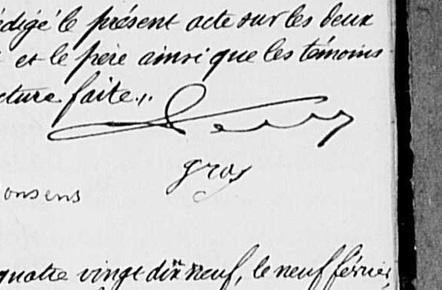 édigé le présent acte sur les deux
et le père ainsi que les témoins
cture faite.
gros
onsens
quatre vingt dix neuf, le neuf février,